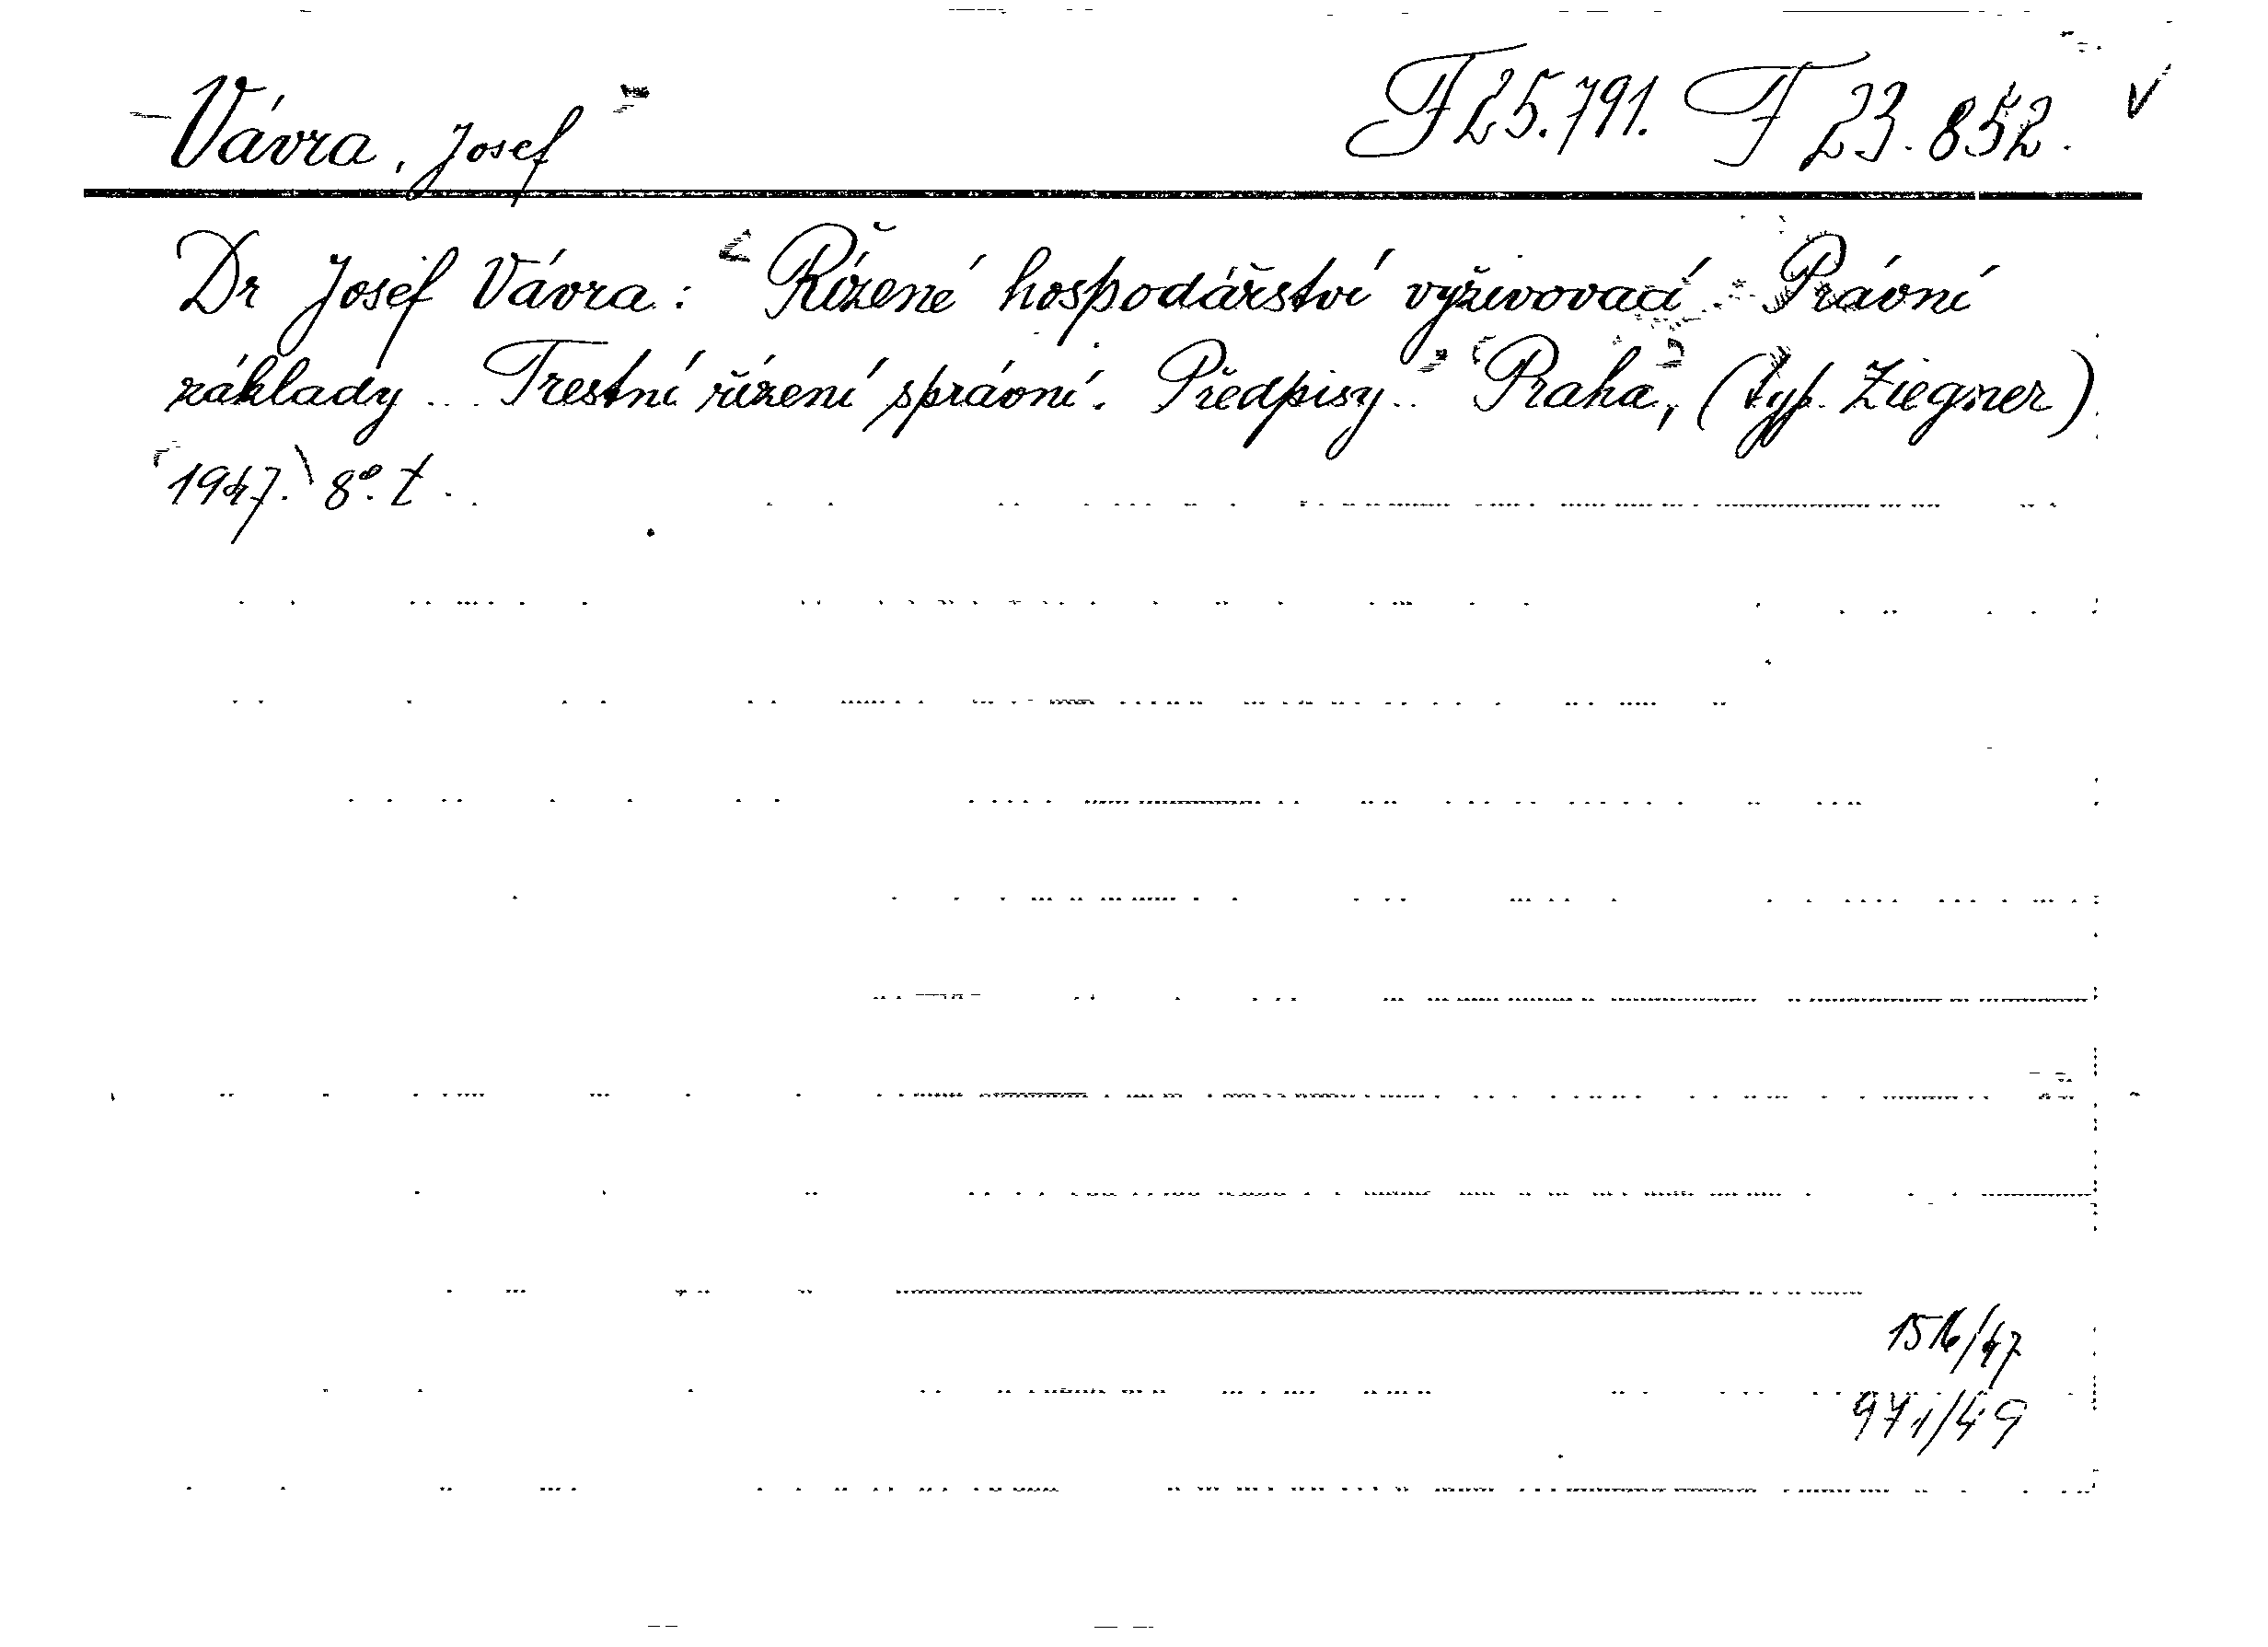 Vávra, Josef F 25.791. F 23.852. V
Dr Josef Vávra: Řízené hospodářství vyživovací. Právní
základy... Trestní řízení správní. Předpisy.. Praha, (typ. Ziegner)
1947. 8°. t.
1516/47
971/49